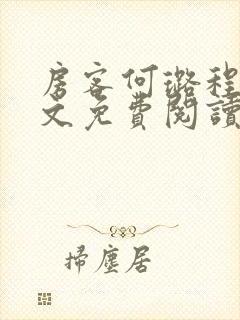 房客何璐程
文免費閱讀
掃塵居